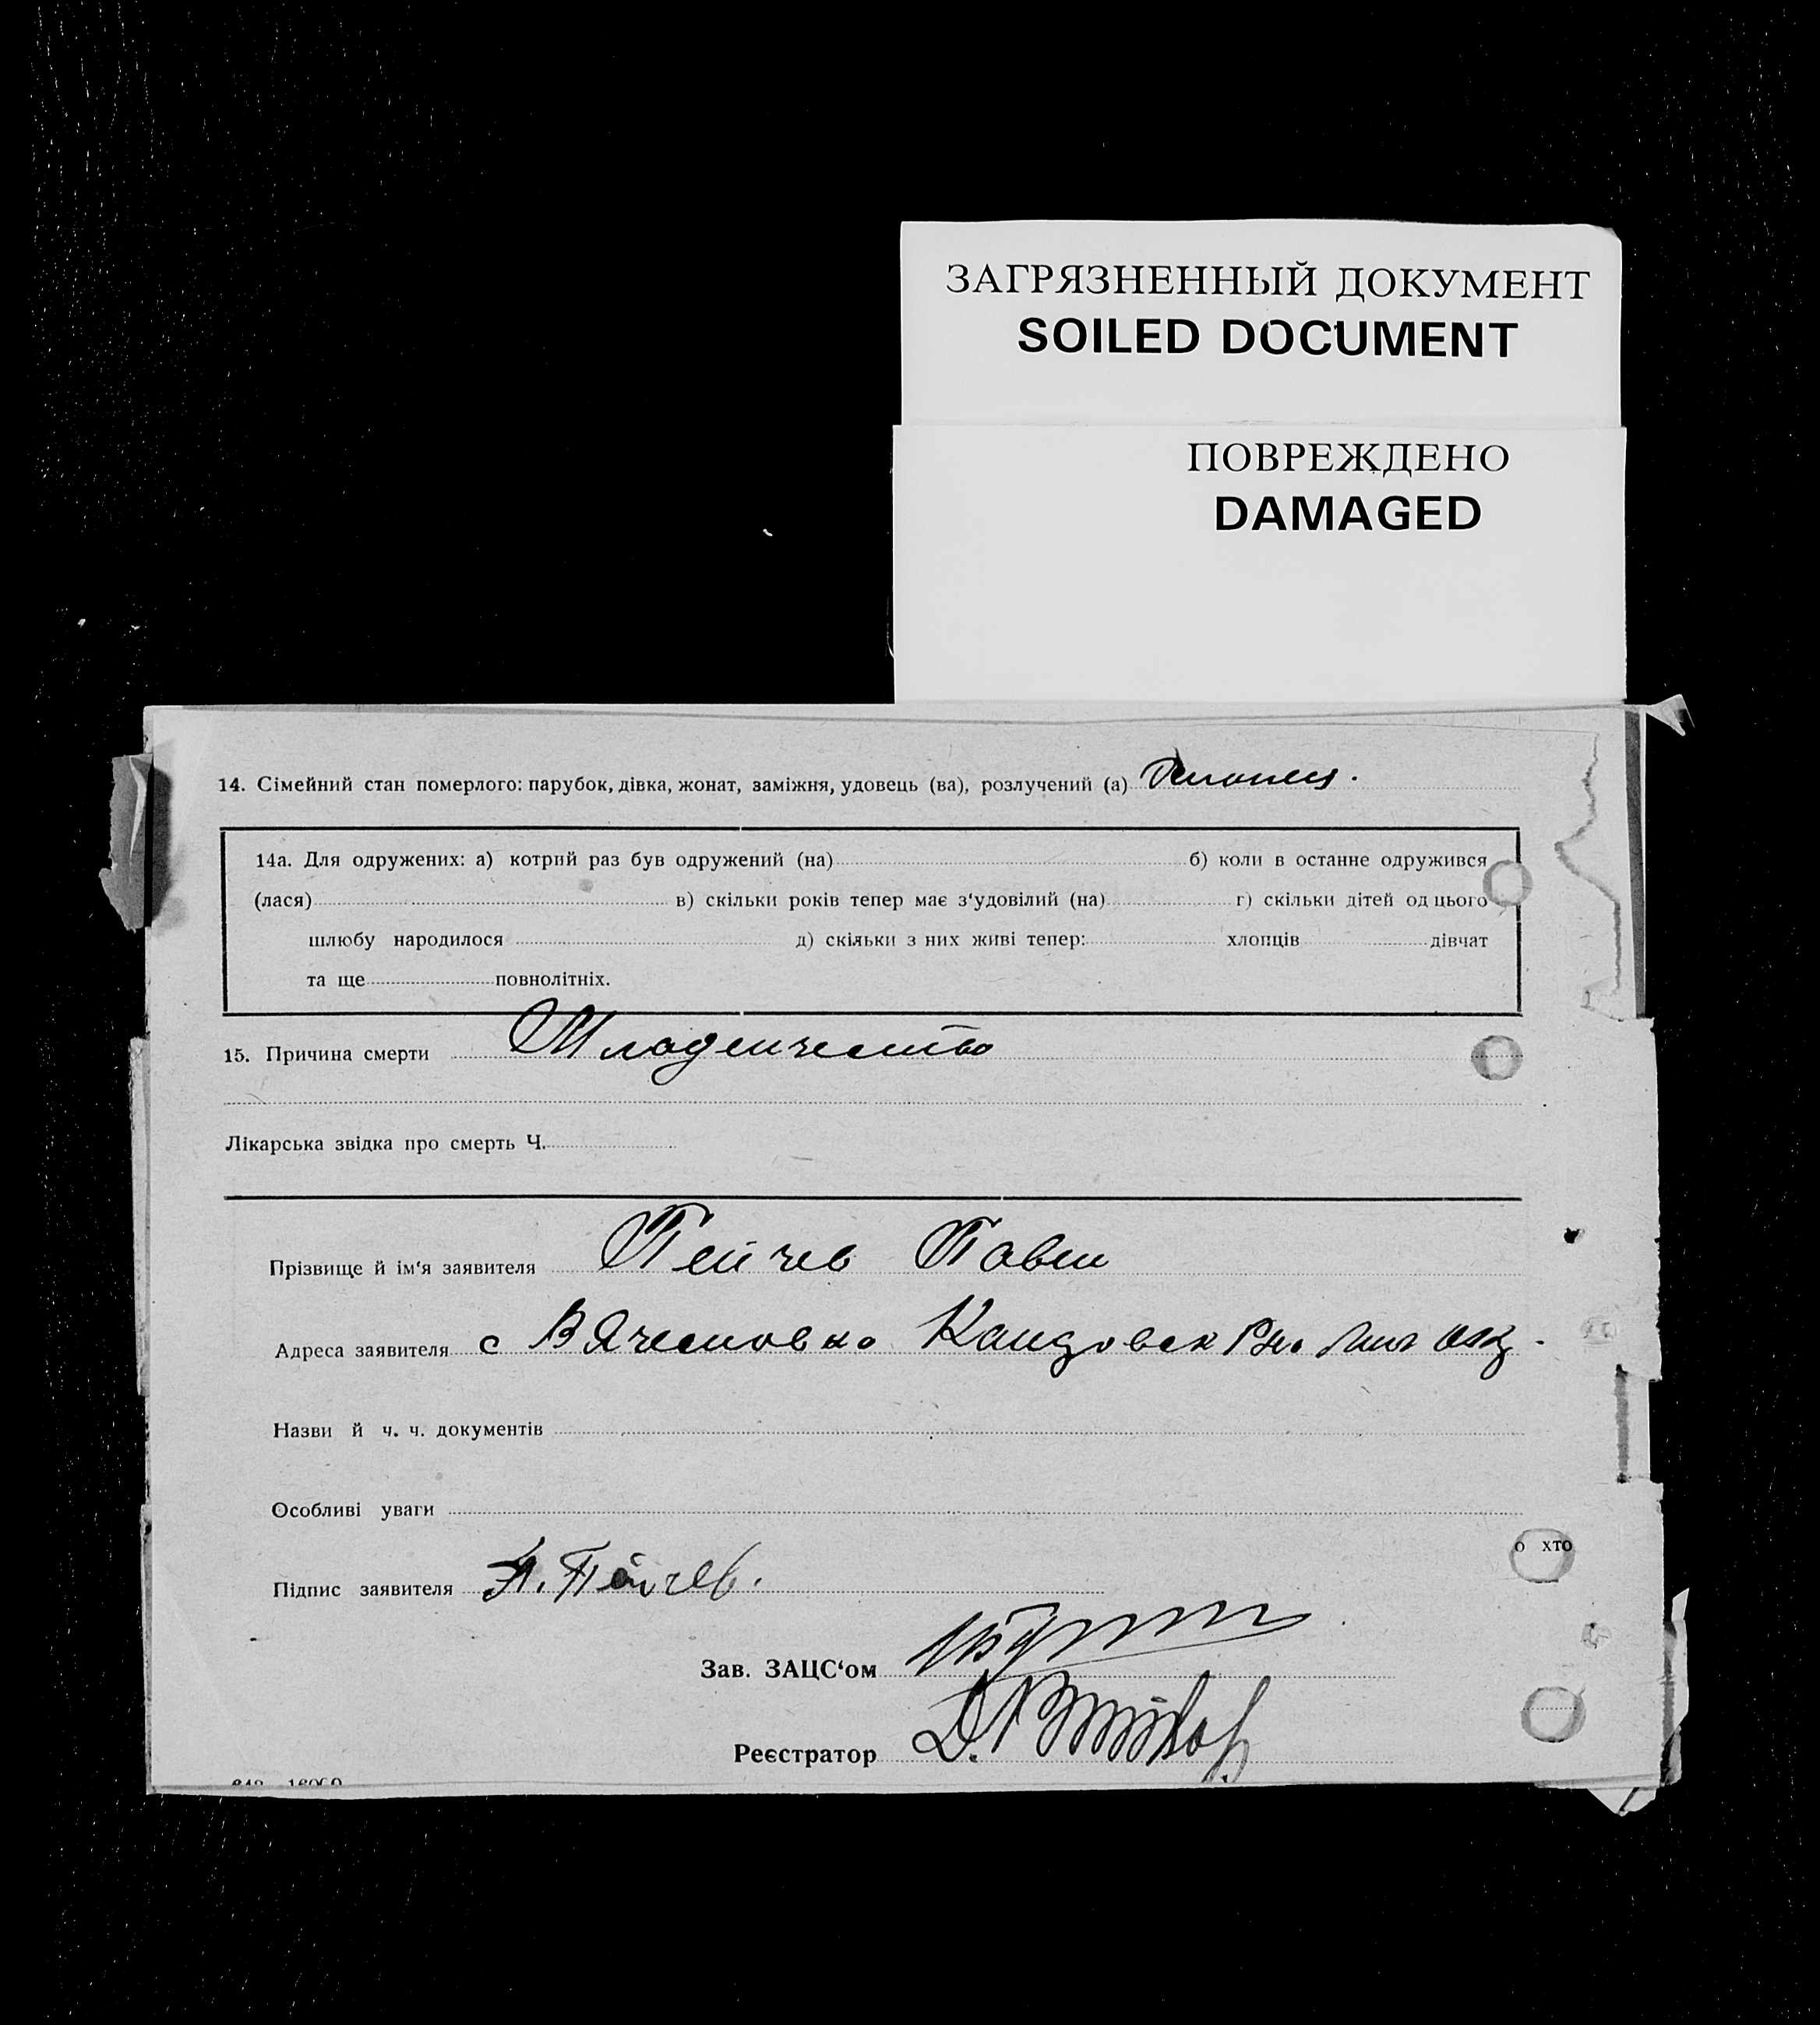 ЗАГРЯЗНЕННЫЙ ДОКУМЕНТ
SOILED DOCUMENT
ПОВРЕЖДЕНО
DAMAGED
14. Сімейний стан померлого: парубок, дівка, жонат, заміжня, удовець (ва), розлучений (а)
14а. Для одружених: а) котрий раз був одружений (на) б) коли в останне одружився
(лася) в) скільки років тепер має з‘удовілий (на) г) скільки дітей од цього
шлюбу народилося д) скільки з них живі тепер: хлопців дівчат
та ще повнолітніх.
15. Причина смерти Младенчество
Лікарська звідка про смерть Ч.
Прізвище й ім‘я заявителя Пейчев Павел
Адреса заявителя с
Назви й ч. ч. документів
Особливі уваги
о хто
Підпис заявителя П. Пейчев.
Зав. ЗАЦС‘ом
Реєстратор